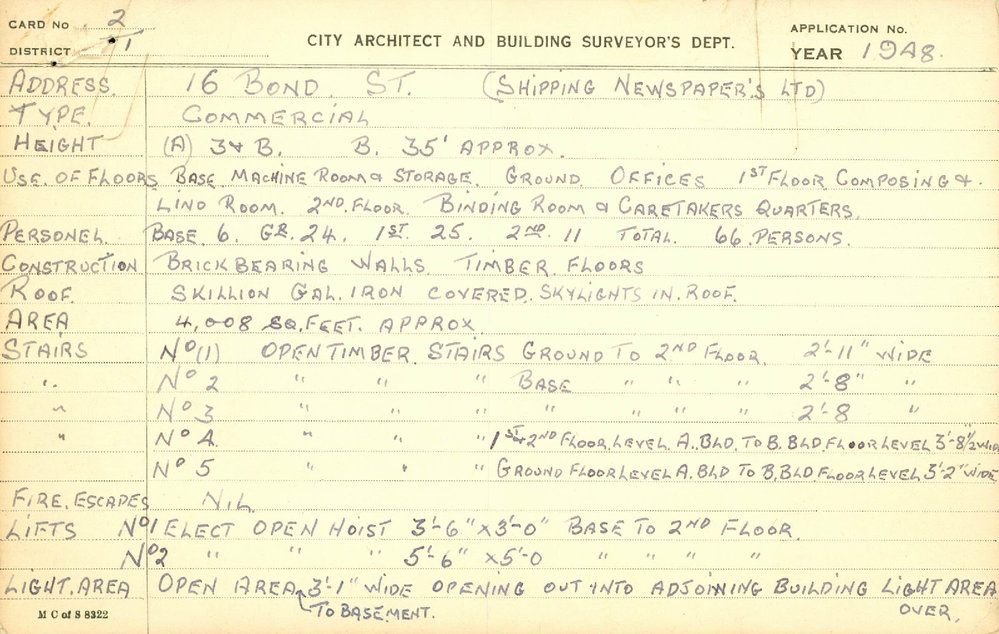 CARD No 2
DISTRICT 1
CITY ARCHITECT AND BUILDING SURVEYOR'S DEPT.
APPLICATION No.
YEAR 1948.
ADDRESS. 16 BOND. ST. (SHIPPING NEWSPAPER'S LTD)
TYPE. COMMERCIAL
HEIGHT (A) 3 & B. B. 35' APPROX.
USE. OF FLOORS BASE. MACHINE ROOM & STORAGE. GROUND. OFFICES 1ST FLOOR. COMPOSING &
LINO ROOM. 2ND. FLOOR. BINDING ROOM & CARETAKERS QUARTERS.
PERSONEL. BASE. 6. GR. 24. 1ST. 25. 2ND. 11 TOTAL. 66. PERSONS.
CONSTRUCTION BRICK BEARING WALLS. TIMBER. FLOORS
ROOF. SKILLION GAL. IRON COVERED. SKYLIGHTS IN. ROOF.
AREA 4,008 SQ. FEET. APPROX.
STAIRS No (1) OPEN TIMBER. STAIRS GROUND TO 2ND FLOOR. 2'-11" WIDE
" No 2 " " " BASE " " " 2'-8" "
" No 3 " " " " " " " 2'-8 "
" No 4. " " " 1ST & 2ND FLOOR. LEVEL. A. BLD. TO B. BLD. FLOOR LEVEL 3'-8 1/2" WIDE
" No 5 " " " GROUND FLOOR LEVEL A. BLD TO B. BLD FLOOR LEVEL 3'-2" WIDE
FIRE. ESCAPES NIL.
LIFTS No 1 ELECT OPEN HOIST 3'-6" x 3'-0" BASE TO 2ND FLOOR.
No 2 " " " 5'-6" x 5'-0 " " " "
LIGHT. AREA OPEN AREA 3'-1" WIDE OPENING OUT INTO ADJOINING BUILDING LIGHT AREA
TO BASEMENT.
OVER.
M C of S 8322